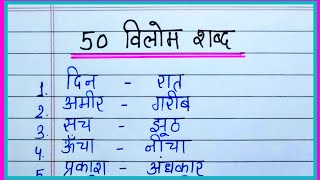 50 विलोम शब्द
1. दिन - रात
2. अमीर - गरीब
3. सच - झूठ
4. ऊँचा - नीचा
5. प्रकाश - अंधकार